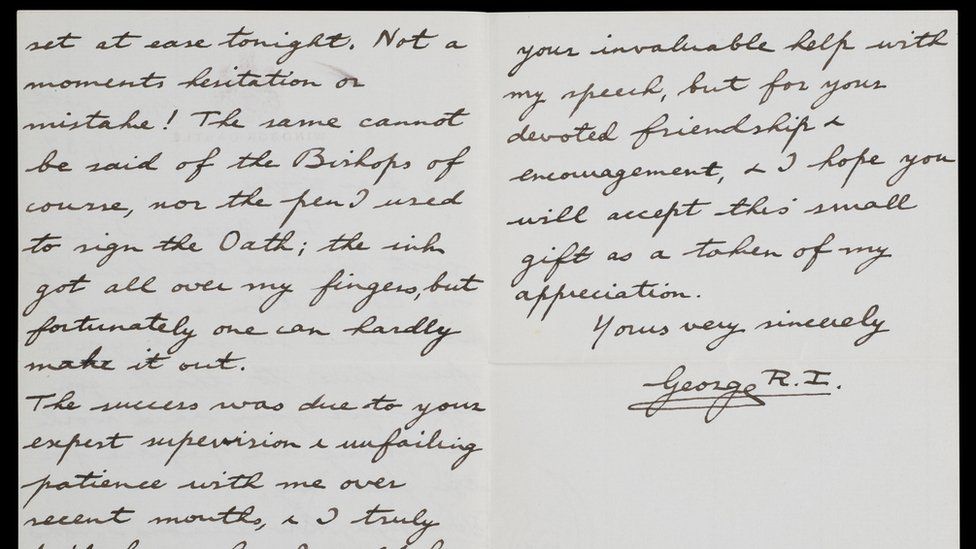 set at ease tonight. Not a
moments hesitation or
mistake! The same cannot
be said of the Bishops of
course, nor the pen I used
to sign the Oath; the ink
got all over my fingers, but
fortunately one can hardly
make it out.
The success was due to your
expert supervision & unfailing
patience with me over
recent months, & I truly
your invaluable help with
my speech, but for your
devoted friendship &
encouragement, & I hope you
will accept this small
gift as a token of my
appreciation.
Yours very sincerely
George R.I.